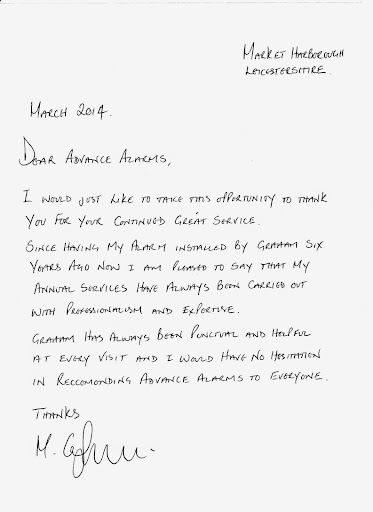 MARKET HARBOROUGH
LEICESTERSHIRE.
MARCH 2014.
DEAR ADVANCE ALARMS,
I WOULD JUST LIKE TO TAKE THIS OPPORTUNITY TO THANK
YOU FOR YOUR CONTINUED GREAT SERVICE.
SINCE HAVING MY ALARM INSTALLED BY GRAHAM SIX
YEARS AGO NOW I AM PLEASED TO SAY THAT MY
ANNUAL SERVICES HAVE ALWAYS BEEN CARRIED OUT
WITH PROFESSIONALISM AND EXPERTISE.
GRAHAM HAS ALWAYS BEEN PUNCTUAL AND HELPFUL
AT EVERY VISIT AND I WOULD HAVE NO HESITATION
IN RECCOMONDING ADVANCE ALARMS TO EVERYONE.
THANKS
M.